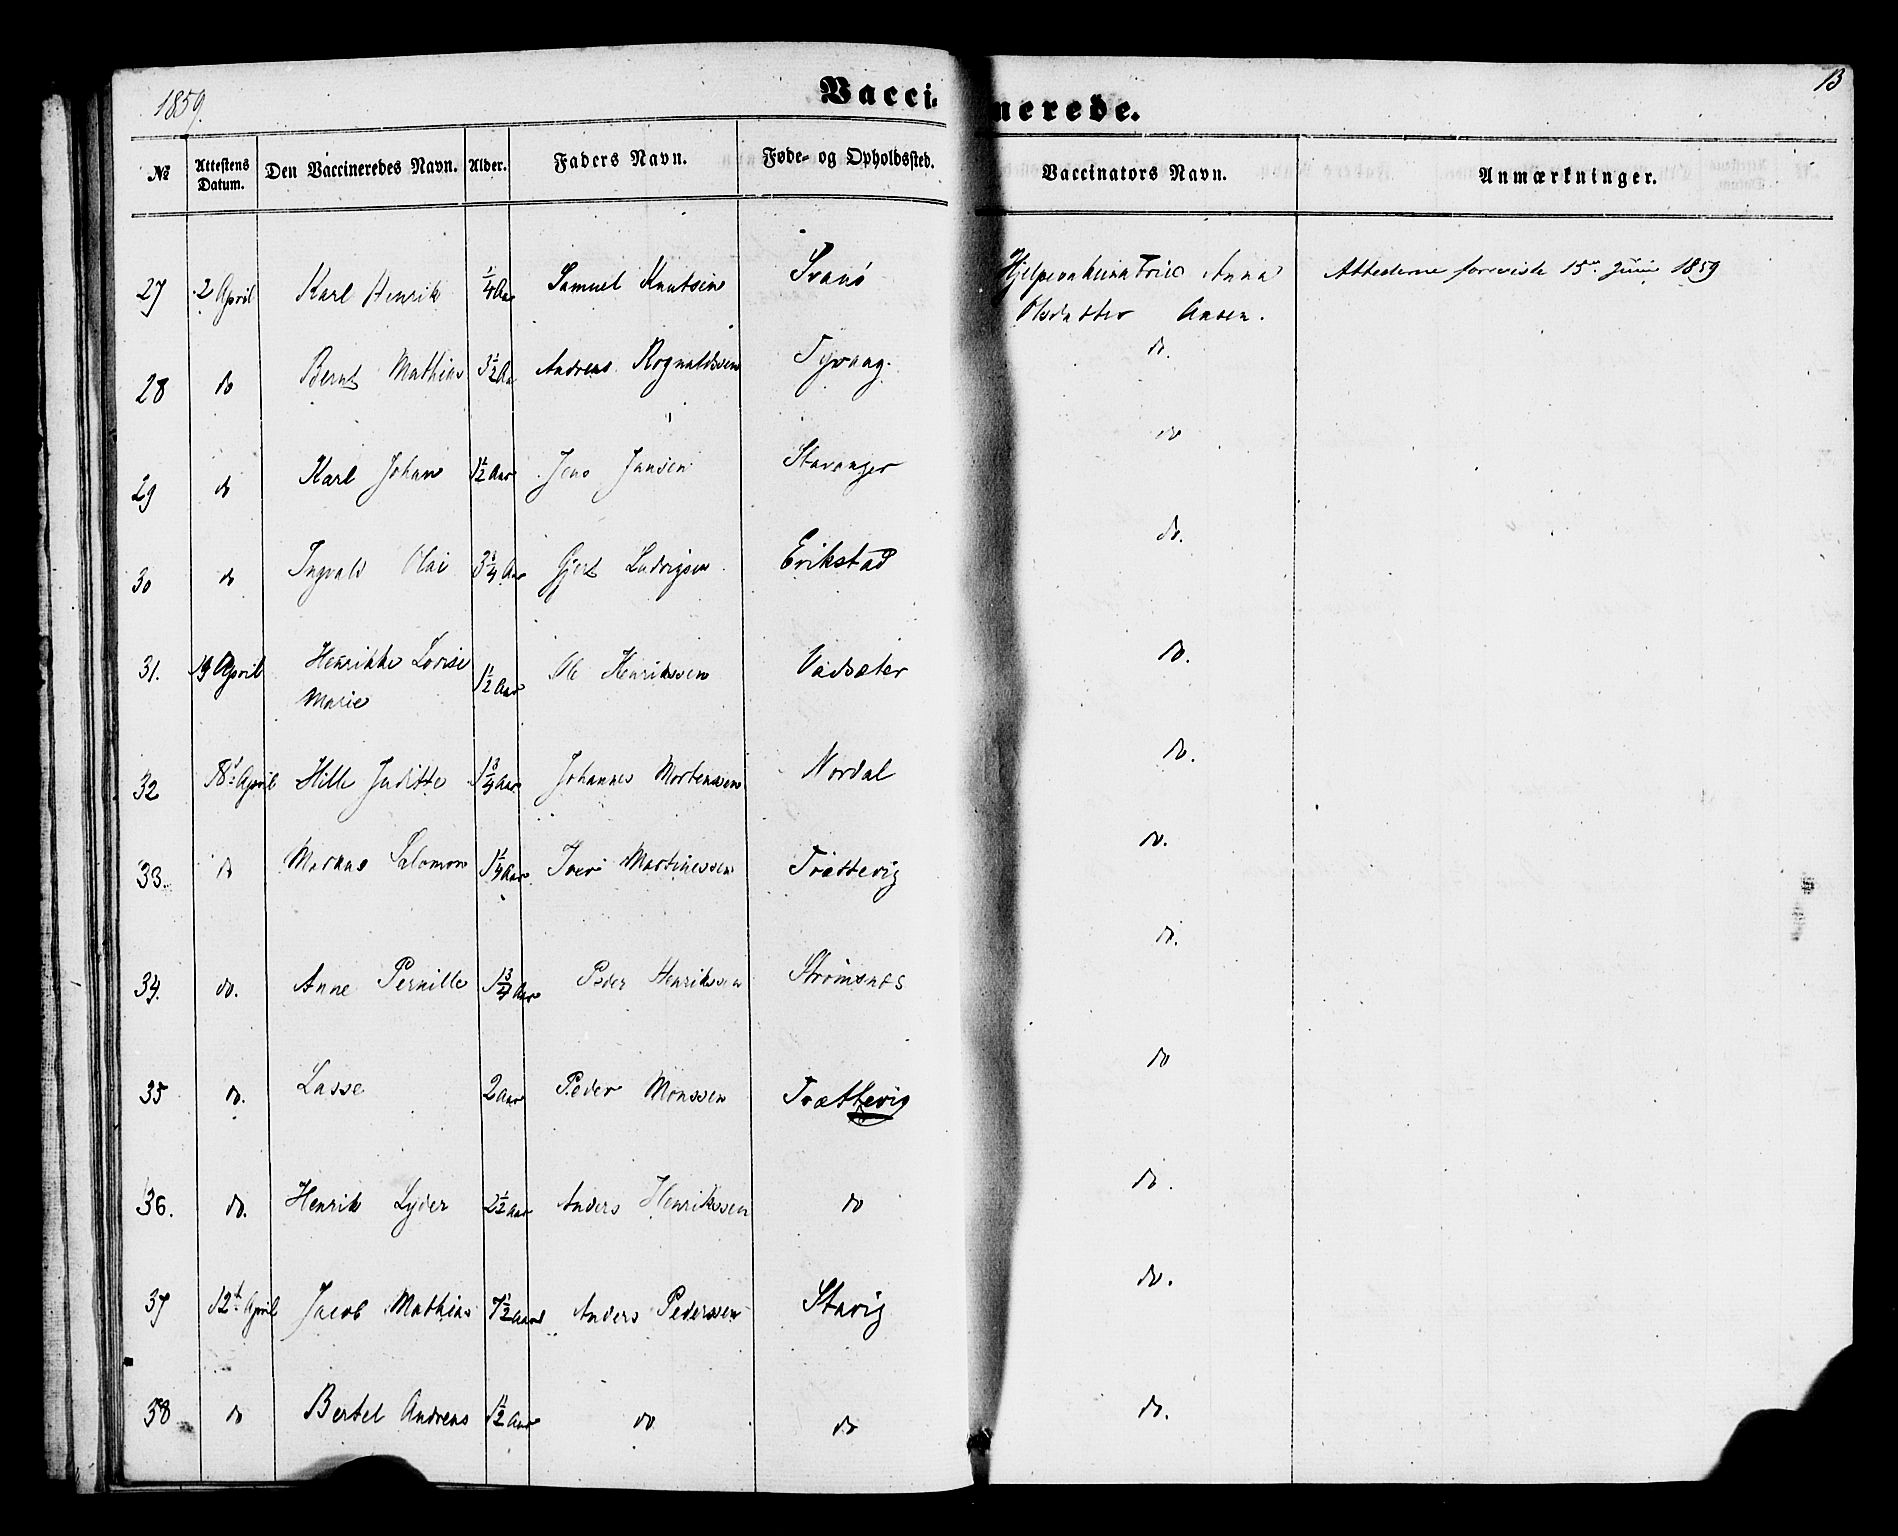 1859.
Vaccinerede.
13
№ Attestens Datum. Den Vaccineredes Navn. Alder. Faders Navn. Føde- og Opholdssted. Vaccinators Navn. Anmærkninger.
27 2 April Karl Henrik 1/4 Aar Samuel Knutsen Svanö Hjelpevaccinatrice Anna Attesterne foreviste 15de Juni 1859
Olsdatter Aasen.
28 do Bernt Mathias 3 1/2 Aar Andreas Rognaldssen do.
29 do Karl Johan 1 1/2 Aar Jens Jansen Stavanger do
30 do Ingvald Olai 3 1/4 Aar Gjert Ludvigsen Erikstad do.
31. 19 April Henrikke Lovise 1 1/2 Aar Ole Henrikssen Vadsæter do.
Marie
32 18de April Hille Juditte 1 3/4 Aar Johannes Mortenssen Nordal do.
33. do Markus Salomon 1 1/4 Aar Iver Martinessen Trættevig do.
34. do. Anne Pernille 1 3/4 Aar Peder Henrikssen Strömsnes do.
35 do. Lasse 2 Aar Peder Monssen Trættevig do
36. do. Henrik Lyder 2 1/2 Aar Anders Henrikssen do do.
37 12t April Jacob Mathias 7 1/2 Aar Anders Pederssen Stavig do.
38 do Bertel Andreas 1 1/2 Aar do do do.